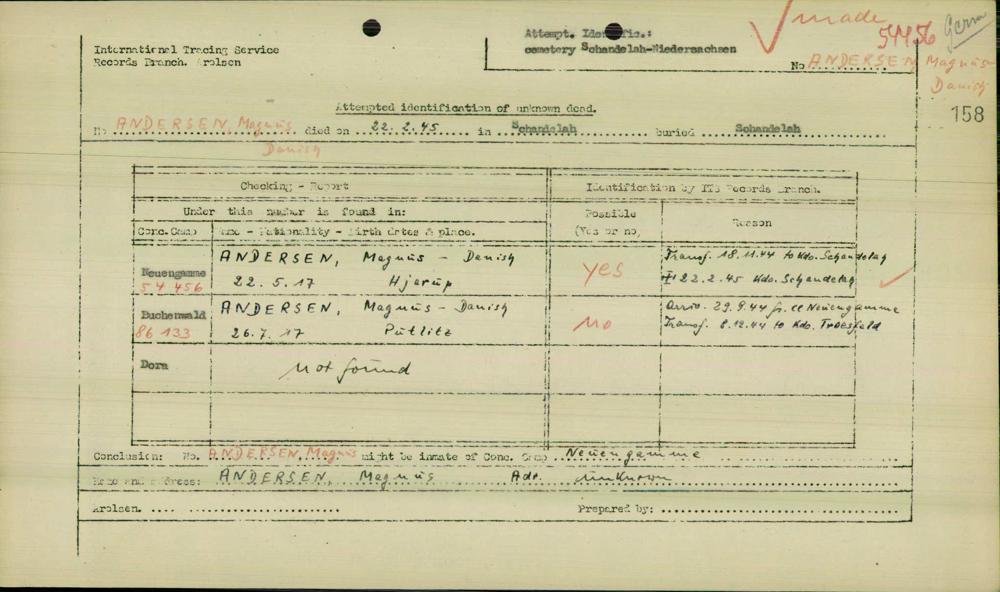 made
54456 Germ
Attempt. Identific.:
cemetery Schandelah-Niedersachsen
International Tracing Service
Records Branch. Arolsen
No ANDERSEN, Magnus
Danish
158
Attempted identification of unknown dead.
No ANDERSEN, Magnus died on 22.2.45 in Schandelah buried Schandelah
Danish
Checking - Report
Identification by ITS Records Branch.
Under this number is found in:
Possible
(Yes or no)
Reason
Conc.Camp
Name - Nationality - Birth dates & place.
Neuengamme
54 456
ANDERSEN, Magnus - Danish
22.5.17 Hjarup
yes
Transf. 18.11.44 to Kdo. Schandelah
22.2.45 Kdo. Schandelah
Buchenwald
86 133
ANDERSEN, Magnus - Danish
26.7.17 Putlitz
no
Arriv. 29.9.44 fr. CC Neuengamme
Transf. 8.12.44 to Kdo.
Dora
not found
Conclusion: No. ANDERSEN, Magnus might be inmate of Conc. Camp Neuengamme
Name and address: ANDERSEN, Magnus Adr. unknown
Arolsen.
Prepared by: